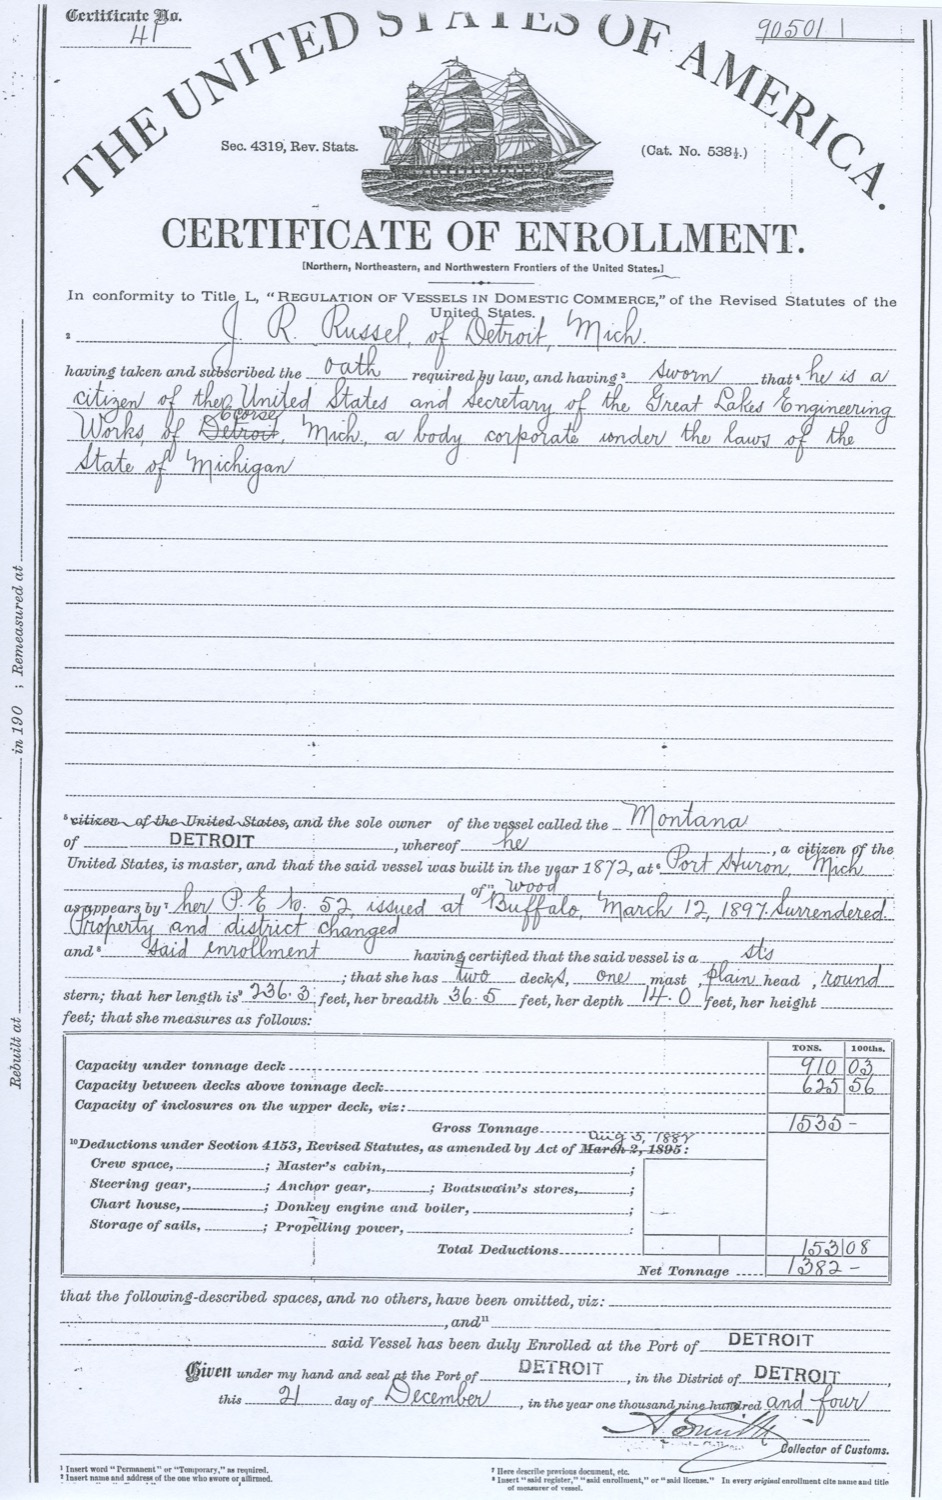 Certificate No.
41
90501
THE UNITED STATES OF AMERICA.
Sec. 4319, Rev. Stats.
(Cat. No. 538½.)
CERTIFICATE OF ENROLLMENT.
[Northern, Northeastern, and Northwestern Frontiers of the United States.]
In conformity to Title L, "REGULATION OF VESSELS IN DOMESTIC COMMERCE," of the Revised Statutes of the
United States.
² J. R. Russel, of Detroit, Mich.
having taken and subscribed the oath required by law, and having³ sworn that⁴ he is a
citizen of the United States and Secretary of the Great Lakes Engineering
Ecorse
Works, of Detroit, Mich., a body corporate under the laws of the
State of Michigan
⁵ citizen of the United States, and the sole owner of the vessel called the Montana
of DETROIT, whereof he, a citizen of the
United States, is master, and that the said vessel was built in the year 1872, at⁶ Port Huron, Mich
of wood
as appears by⁷ her P. E. No. 52, issued at Buffalo, March 12, 1897. Surrendered.
Property and district changed
and⁸ said enrollment having certified that the said vessel is a st's
; that she has two decks, one mast, plain head, round
stern; that her length is⁹ 236.3 feet, her breadth 36.5 feet, her depth 14.0 feet, her height
feet; that she measures as follows:
TONS. 100ths.
Capacity under tonnage deck 910 03
Capacity between decks above tonnage deck 625 56
Capacity of inclosures on the upper deck, viz:
Gross Tonnage 1535 -
Aug 5, 1882
¹⁰Deductions under Section 4153, Revised Statutes, as amended by Act of March 2, 1895:
Crew space, ; Master's cabin, ;
Steering gear, ; Anchor gear, ; Boatswain's stores, ;
Chart house, ; Donkey engine and boiler, ;
Storage of sails, ; Propelling power, :
Total Deductions 153 08
Net Tonnage 1382 -
that the following-described spaces, and no others, have been omitted, viz:
, and¹¹
said Vessel has been duly Enrolled at the Port of DETROIT
Given under my hand and seal at the Port of DETROIT, in the District of DETROIT,
this 21 day of December, in the year one thousand nine hundred and four
Collector of Customs.
¹ Insert word "Permanent" or "Temporary," as required.
² Insert name and address of the one who swore or affirmed.
⁷ Here describe previous document, etc.
⁸ Insert "said register," "said enrollment," or "said license." In every original enrollment cite name and title
of measurer of vessel.
Rebuilt at in 190 ; Remeasured at